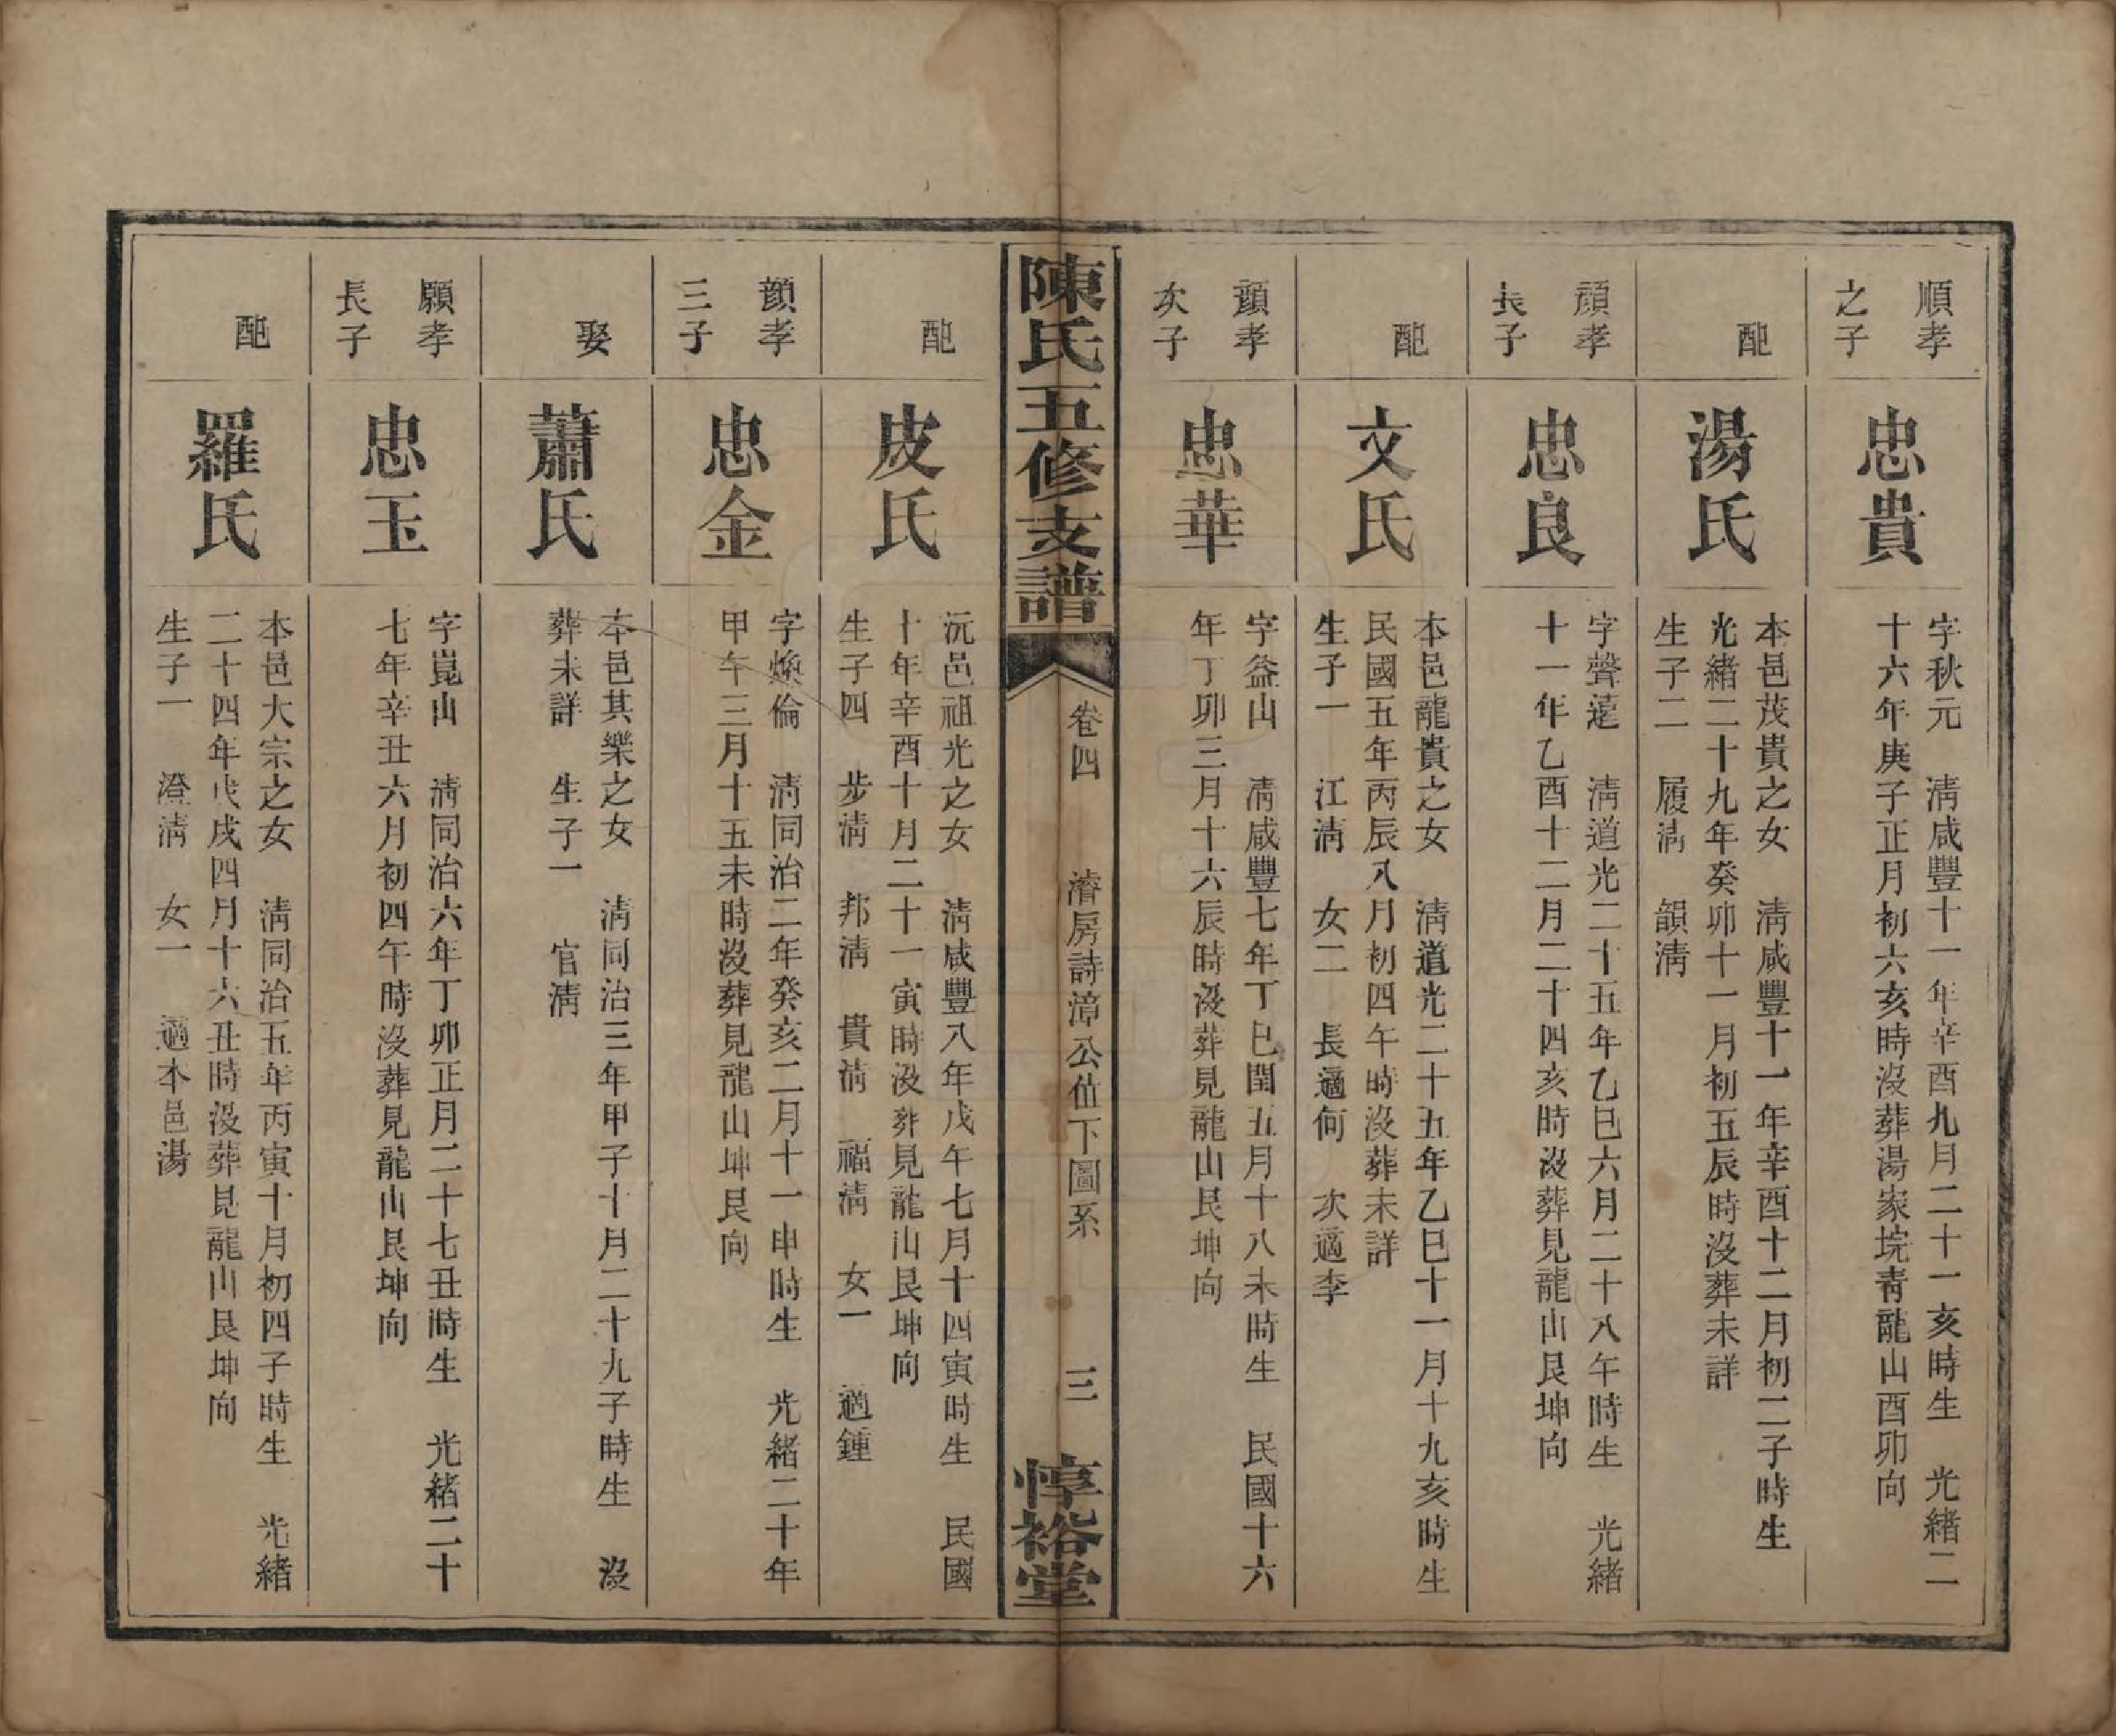 順孝
之子
忠貴
字秋元　清咸豐十一年辛酉九月二十一亥時生　光緒二
十六年庚子正月初六亥時沒葬湯家垸青龍山酉卯向
配
湯氏
本邑茂貴之女　清咸豐十一年辛酉十二月初二子時生
光緒二十九年癸卯十一月初五辰時沒葬未詳
生子二　履清　韻清
顏孝
長子
忠良
字聲遠　清道光二十五年乙巳六月二十八午時生　光緒
十一年乙酉十二月二十四亥時沒葬見龍山艮坤向
配
文氏
本邑龍貴之女　清道光二十五年乙巳十一月十九亥時生
民國五年丙辰八月初四午時沒葬未詳
生子一　江清　女二　長適何　次適李
顏孝
次子
忠華
字益山　清咸豐七年丁巳閏五月十八未時生　民國十六
年丁卯三月十六辰時沒葬見龍山艮坤向
陳氏五修支譜
卷四　濬房詩漳公值下圖系　三
惇裕堂
配
皮氏
沅邑祖光之女　清咸豐八年戊午七月十四寅時生　民國
十年辛酉十月二十一寅時沒葬見龍山艮坤向
生子四　步清　邦清　貴清　福清　女一　適鍾
顏孝
三子
忠金
字煥倫　清同治二年癸亥二月十一申時生　光緒二十年
甲午三月十五未時沒葬見龍山坤艮向
娶
蕭氏
本邑其樂之女　清同治三年甲子十月二十九子時生　沒
葬未詳　生子一　官清
願孝
長子
忠玉
字崑山　清同治六年丁卯正月二十七丑時生　光緒二十
七年辛丑六月初四午時沒葬見龍山艮坤向
配
羅氏
本邑大宗之女　清同治五年丙寅十月初四子時生　光緒
二十四年戊戌四月十六丑時沒葬見龍山艮坤向
生子一　澄清　女一　適本邑湯